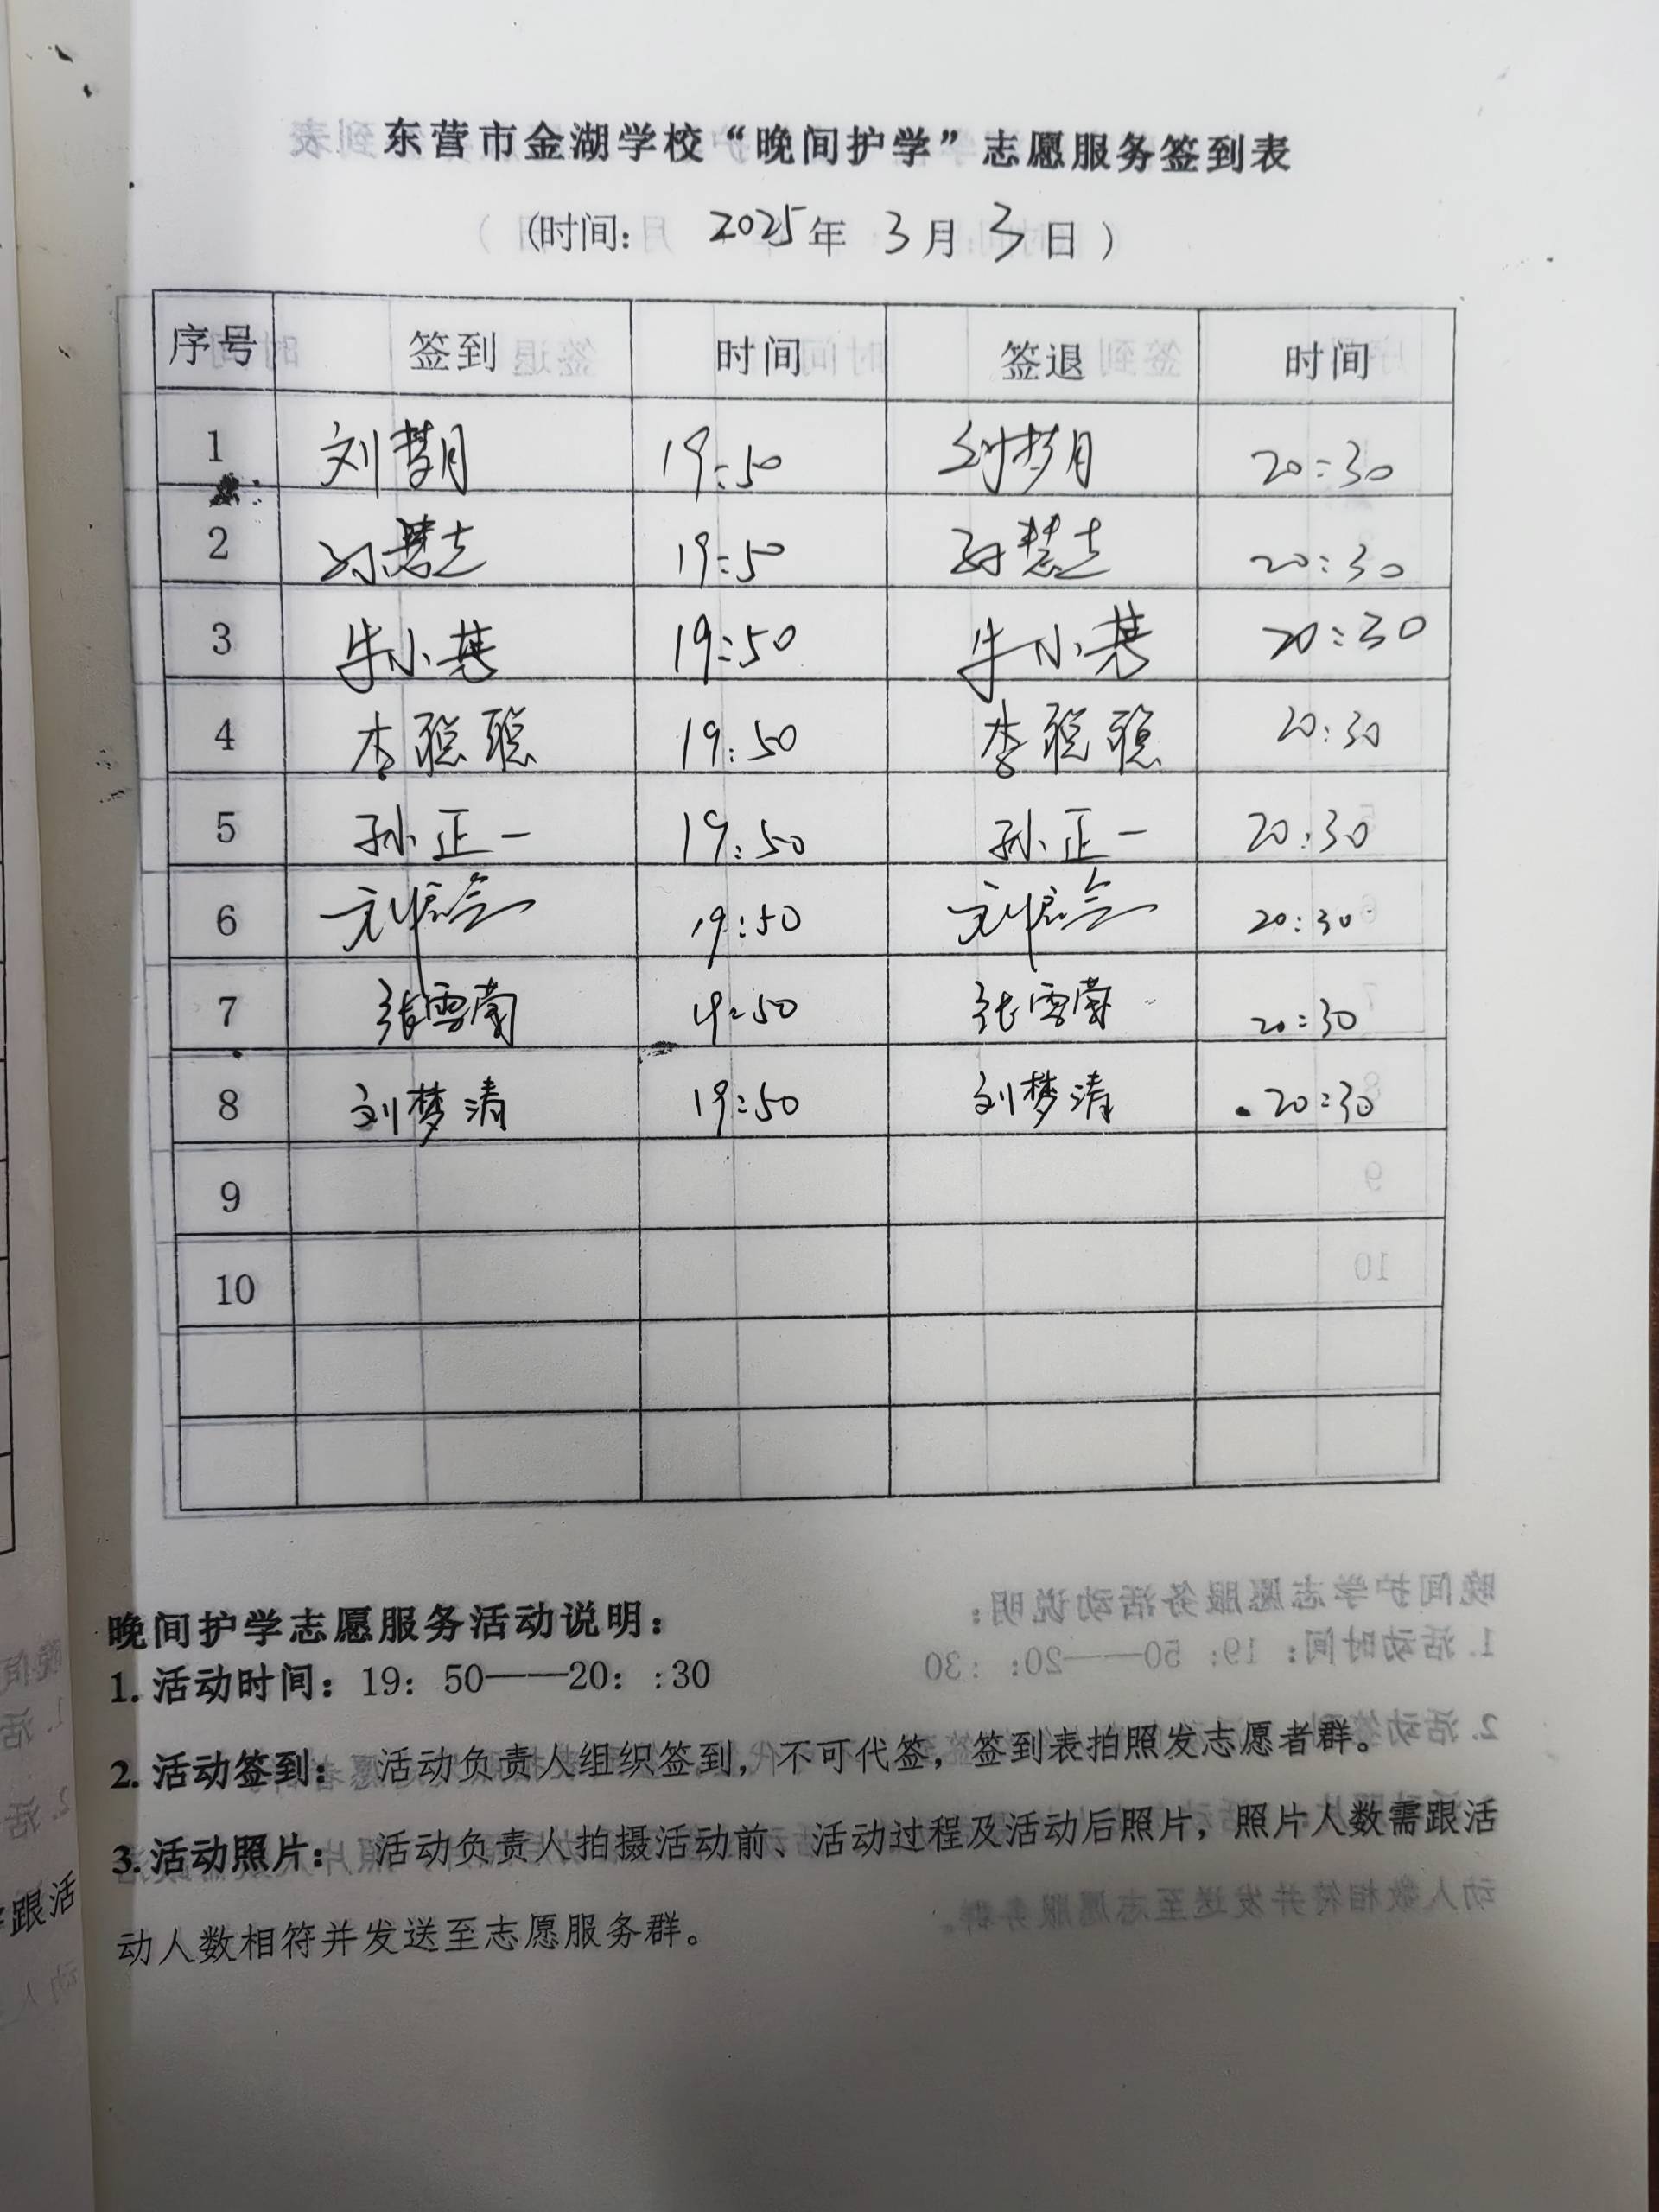 东营市金湖学校“晚间护学”志愿服务签到表
(时间: 2025年 3月 3日 )
序号 签到 时间 签退 时间
1 刘梦月 19:50 刘梦月 20:30
2 19:50 20:30
3 朱小慧 19:50 朱小慧 20:30
4 李聪聪 19:50 李聪聪 20:30
5 孙正一 19:50 孙正一 20:30
6 19:50 20:30
7 张雪菌 19:50 张雪菌 20:30
8 刘梦清 19:50 刘梦清 20:30
9
10
晚间护学志愿服务活动说明：
1. 活动时间：19：50——20：:30
2. 活动签到： 活动负责人组织签到，不可代签，签到表拍照发志愿者群。
3. 活动照片： 活动负责人拍摄活动前、活动过程及活动后照片，照片人数需跟活
动人数相符并发送至志愿服务群。
跟活